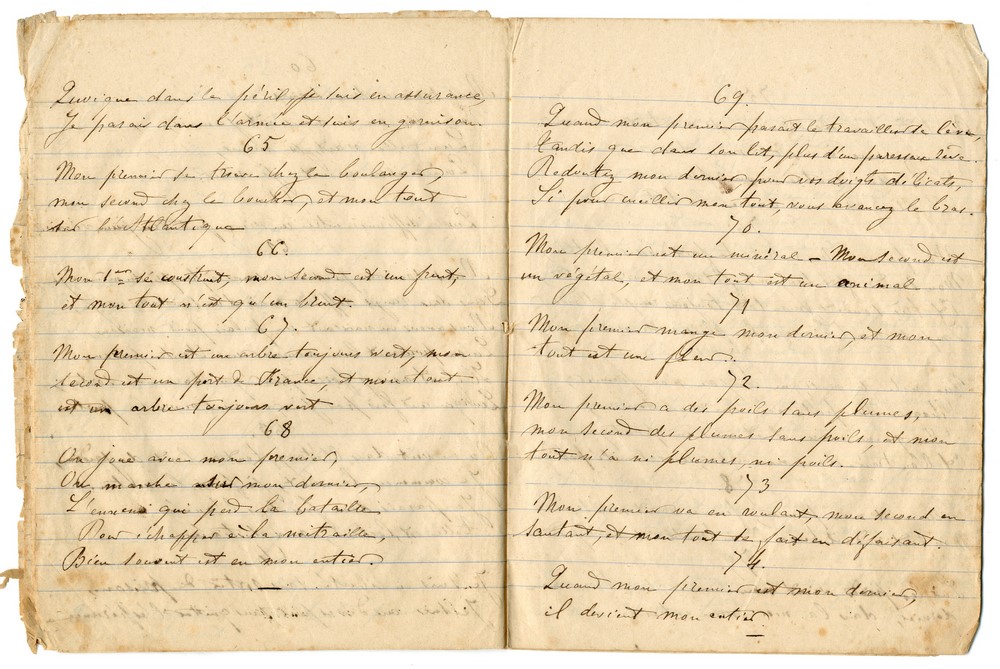 Quoique dans le péril, je suis en assurance,
Je parais dans l'armée et suis en garnison.
65
Mon premier se trouve chez le boulanger,
mon second chez le boucher, et mon tout
sur l'Atlantique
66.
Mon 1er se construit, mon second est un fruit,
et mon tout n'est qu'un bruit.
67.
Mon premier est un arbre toujours vert, mon
second est un port de France, et mon tout
est un arbre toujours vert
68
On joue avec mon premier,
On marche sur mon dernier,
L'ennemi qui perd la bataille
Pour échapper à la mitraille,
Bien souvent est en mon entier.
69.
Quand mon premier paraît le travailleur se lève,
Tandis que dans son lit, plus d'un paresseux rêve.
Redoutez mon dernier pour vos doigts délicats,
Si pour cueillir mon tout, vous avancez le bras.
70.
Mon premier est un minéral - Mon second est
un végétal, et mon tout est un animal
71
Mon premier mange mon dernier, et mon
tout est une fleur.
72.
Mon premier a des poils sans plumes,
mon second des plumes sans poils, et mon
tout n'a ni plumes, ni poils.
73
Mon premier va en roulant, mon second en
sautant, et mon tout se fait en défaisant.
74.
Quand mon premier est mon dernier,
il devient mon entier